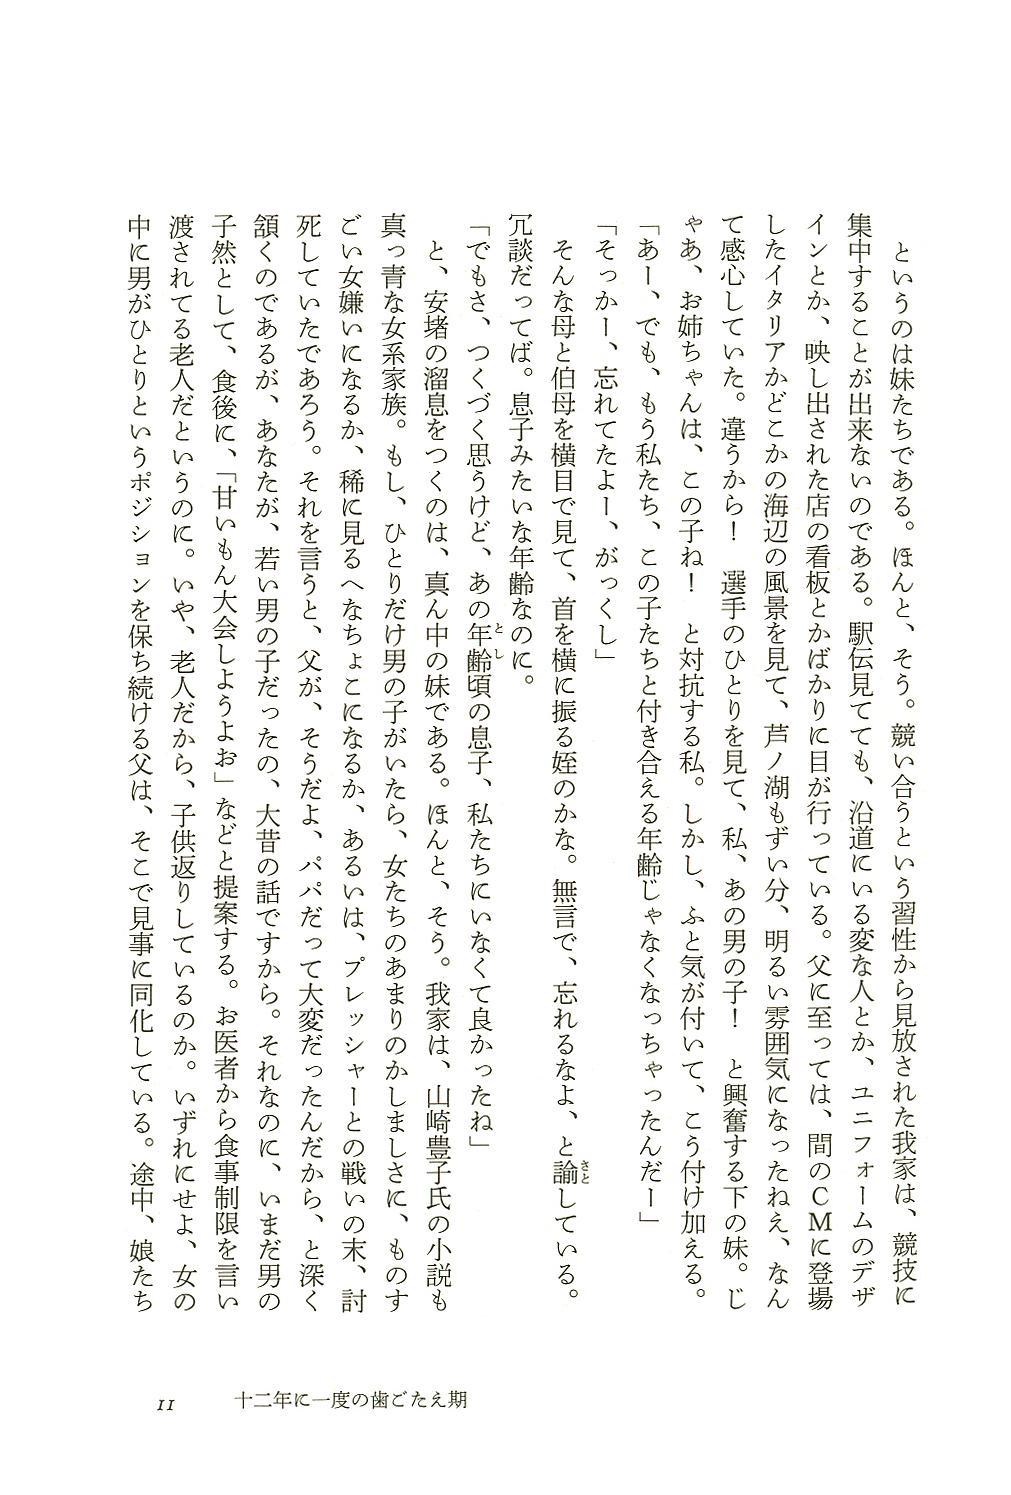 というのは妹たちである。ほんと、そう。競い合うという習性から見放された我家は、競技に
集中することが出来ないのである。駅伝見てても、沿道にいる変な人とか、ユニフォームのデザ
インとか、映し出された店の看板とかばかりに目が行っている。父に至っては、間のＣＭに登場
したイタリアかどこかの海辺の風景を見て、芦ノ湖もずい分、明るい雰囲気になったねえ、なん
て感心していた。違うから！　選手のひとりを見て、私、あの男の子！　と興奮する下の妹。じ
ゃあ、お姉ちゃんは、この子ね！　と対抗する私。しかし、ふと気が付いて、こう付け加える。
「あー、でも、もう私たち、この子たちと付き合える年齢じゃなくなっちゃったんだー」
「そっかー、忘れてたよー、がっくし」
そんな母と伯母を横目で見て、首を横に振る姪のかな。無言で、忘れるなよ、と諭している。
冗談だってば。息子みたいな年齢なのに。
「でもさ、つくづく思うけど、あの年齢頃の息子、私たちにいなくて良かったね」
と、安堵の溜息をつくのは、真ん中の妹である。ほんと、そう。我家は、山崎豊子氏の小説も
真っ青な女系家族。もし、ひとりだけ男の子がいたら、女たちのあまりのかしましさに、ものす
ごい女嫌いになるか、稀に見るへなちょこになるか、あるいは、プレッシャーとの戦いの末、討
死していたであろう。それを言うと、父が、そうだよ、パパだって大変だったんだから、と深く
頷くのであるが、あなたが、若い男の子だったの、大昔の話ですから。それなのに、いまだ男の
子然として、食後に、「甘いもん大会しようよお」などと提案する。お医者から食事制限を言い
渡されてる老人だというのに。いや、老人だから、子供返りしているのか。いずれにせよ、女の
中に男がひとりというポジションを保ち続ける父は、そこで見事に同化している。途中、娘たち
11　十二年に一度の歯ごたえ期